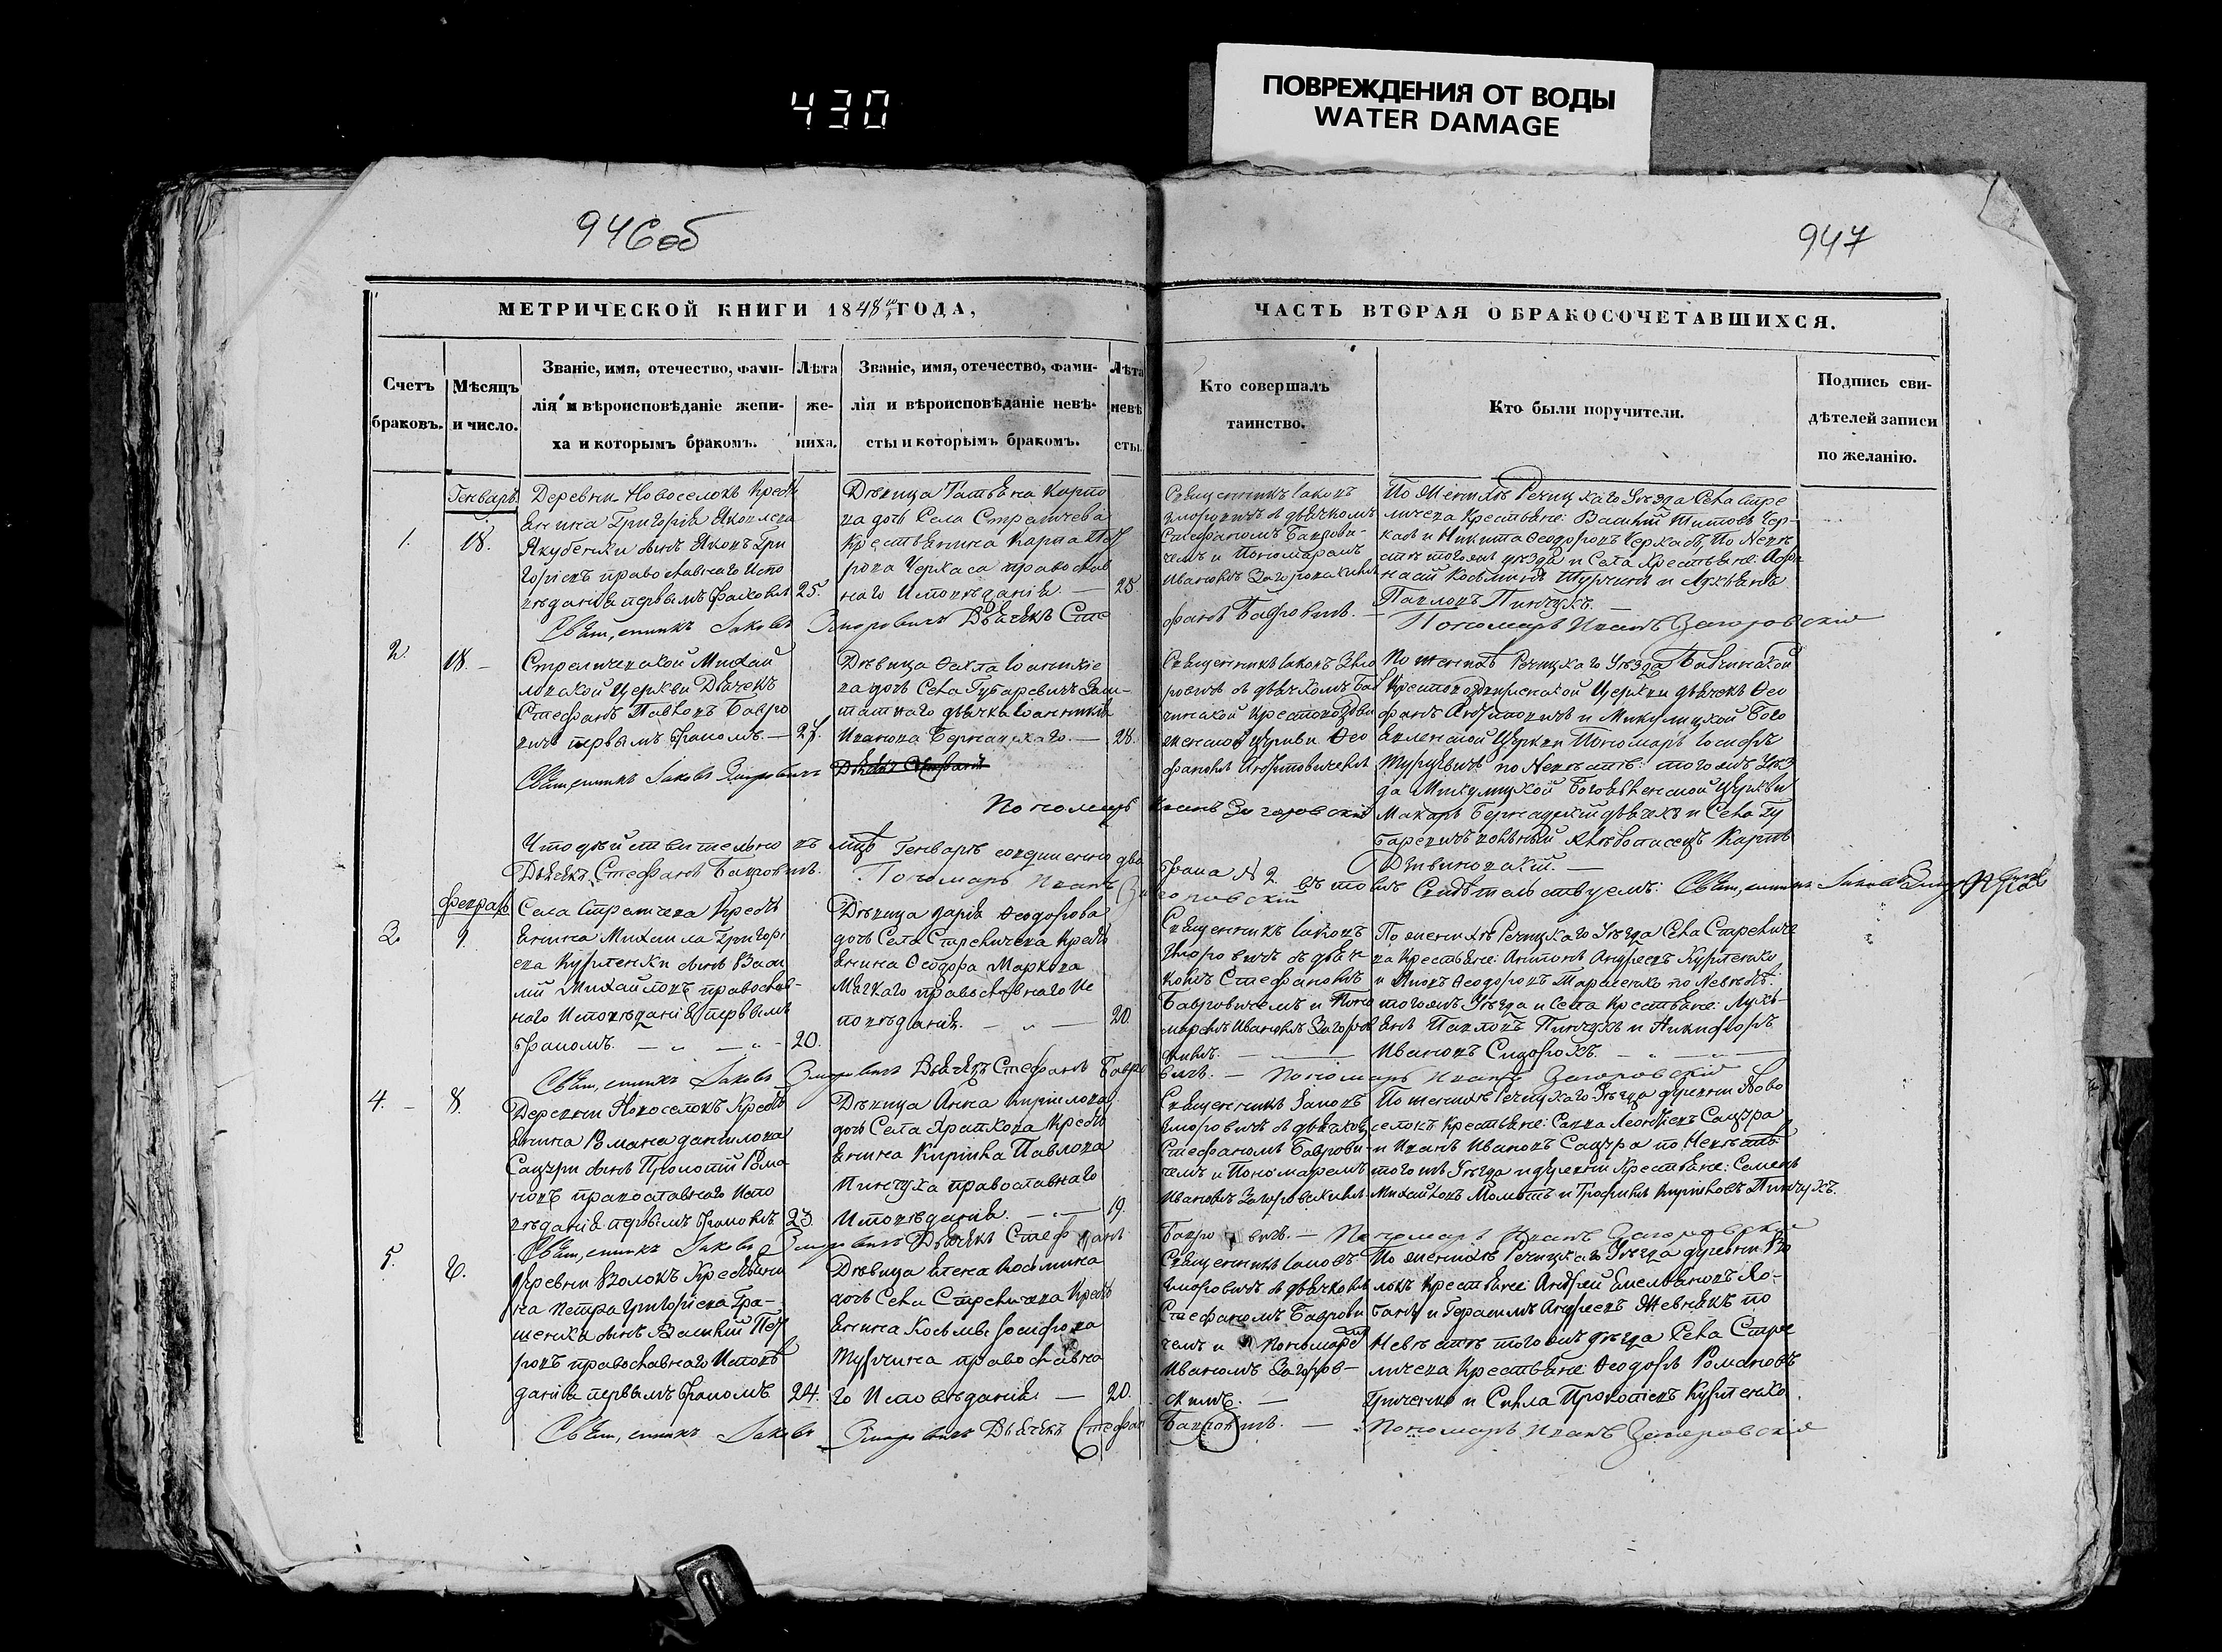 430
ПОВРЕЖДЕНИЯ ОТ ВОДЫ
WATER DAMAGE
946об
947
МЕТРИЧЕСКОЙ КНИГИ 1848го ГОДА,
ЧАСТЬ ВТОРАЯ О БРАКОСОЧЕТАВШИХСЯ.
Счетъ
браковъ.
Мѣсяцъ
и число.
Званіе, имя, отечество, фами-
лія и вѣроисповѣданіе жени-
ха и которымъ бракомъ.
Лѣта
же-
ниха.
Званіе, имя, отечество, фами-
лія и вѣроисповѣданіе невѣ-
сты и которымъ бракомъ.
Лѣта
невѣ
сты.
Кто совершалъ
таинство.
Кто были поручители.
Подпись сви-
дѣтелей записи
по желанію.
Генварь
1.
18.
Деревни Новоселокъ Кресть
янина Григорія Яковлева
Якубенки сынъ Яковъ Гри
горіевъ православнаго Испо
вѣданія первымъ бракомъ
25.
Дѣвица Татьяна Карпо
ва дочь Села Стреличева
Крестьянина Карпа Пет
рова Черкаса православ
наго Исповѣданія —
25.
Священникъ Іаковъ
съ дьячкомъ
Стефаномъ Баврови-
чемъ и Пономаремъ
Иваномъ Загоровскимъ
По Женихѣ Речицкаго Уѣзда Села Стре
личева Крестьяне: Василій Титовъ Чер-
касъ и Никита Ѳеодоровъ Черкасъ, По Невѣ
стѣ тогожъ уѣзда и Села Крестьяне: Афа
насій Косьминъ Турчинъ и Лукьянъ
Павловъ Пинчукъ. —
Священникъ Іаковъ Дьячекъ Сте
фанъ Бавровичъ. — Пономарь Иванъ Загоровскій
2.
18. —
Стреличевской Михай
ловской Церкви Дьячекъ
Стефанъ Павловъ Бавро
вичъ первымъ бракомъ. —
27.
Дѣвица Ѳекла Іоанникіе
ва дочь Села Губаревичъ Заш-
татнаго дьячка Іоанникія
Иванова Бернацкаго. —
28.
Священникъ Іаковъ
съ дьячкомъ Баб
чинской Крестовоздви
женской церкви Ѳео
фаномъ
По женихѣ Речицкаго Уѣзда Бабчинской
Крестовоздвиженской Церкви дьячекъ Ѳео
фанъ и Микулицкой Бого
явленской Церкви Пономарь Іосифъ
по Невѣстѣ: тогожъ Уѣз
да Микулицкой Богоявленской Церкви
Макаръ Бернацкій дьячекъ и Села Гу
баревичъ Карпъ
Священникъ Іаковъ
Пономарь Иванъ Загоровскій
Что дѣйствительно въ мцѣ Генварѣ совершено два
брака № 2 въ томъ Свидѣтельствуемъ: Священникъ Іаковъ
Дьячекъ Стефанъ Бавровичъ. Пономарь Иванъ Загоровскій
Февраль
3.
1.
Села Стреличева Кресть
янина Михаила Григорі
ева Курленки сынъ Васи
лій Михайловъ православ-
наго Исповѣданія первымъ
бракомъ. —
20.
Дѣвица Ѳеодорова
дочь Села Стреличева Кресть
янина Ѳеодора Маркова
православнаго Ис
повѣданія. —
20.
Священникъ Іаковъ
съ дьяч
комъ Стефаномъ
Бавровичемъ и Поно
маремъ Иваномъ Загоров
скимъ. —
По женихѣ Речицкаго Уѣзда Села Стреличе
ва Крестьяне: Антонъ Андреевъ Курленко
и Ѳеодоровъ Тарасенко по Невѣстѣ:
тогожъ Уѣзда и Села Крестьяне: Лукь-
янъ Павловъ Пинчукъ и Никифоръ
Ивановъ Сидорокъ. —
Священникъ Іаковъ Дьячекъ Стефанъ Бавро
вичъ. — Пономарь Иванъ Загоровскій
4. —
8.
Деревни Новоселокъ Кресть
янина Романа Данилова
Сацуры сынъ Рома
новъ православнаго Испо
вѣданія первымъ бракомъ
23.
Дѣвица Анна Кирилова
дочь Села Храпкова Кресть
янина Кирила Павлова
Пинчука православнаго
Исповѣданія. —
19.
Священникъ Іаковъ
съ дьячкомъ
Стефаномъ Баврови-
чемъ и Пономаремъ
Иваномъ Загоровскимъ
По женихѣ Речицкаго Уѣзда деревни Ново
селокъ Крестьяне: Савва Леонтіевъ Сацура
и Иванъ Ивановъ Сацура по Невѣстѣ
тогожъ Уѣзда и деревни Крестьяне: Семенъ
Михайловъ и Трофимъ Кириловъ Пинчукъ.
Священникъ Іаковъ Дьячекъ Стефанъ
Бавровичъ. — Пономарь Иванъ Загоровскій
5.
8.
деревни Волокъ Крестьяни
на Петра Григоріева Гра-
сынъ Василій Пет
ровъ православнаго Исповѣ
данія первымъ бракомъ
24.
Дѣвица Елена Косьмина
дочь Села Стреличева Кресть
янина Косьмы Іосифова
Турчина православна
го Исповѣданія —
20.
Священникъ Іаковъ
съ дьячкомъ
Стефаномъ Баврови
чемъ и Пономаремъ
Иваномъ Загоров-
скимъ. —
По женихѣ Речицкаго Уѣзда деревни Во
локъ Крестьяне: Андрей Емельяновъ
и Герасимъ Андреевъ Жевнякъ по
Невѣстѣ тогожъ уѣзда Села Стре
личева Крестьяне: Ѳеодоръ Романовъ
Гриченко и Сила Прокопіевъ Курленко.
Священникъ Іаковъ Дьячекъ Стефан
Бавровичъ. — Пономарь Иванъ Загоровскій